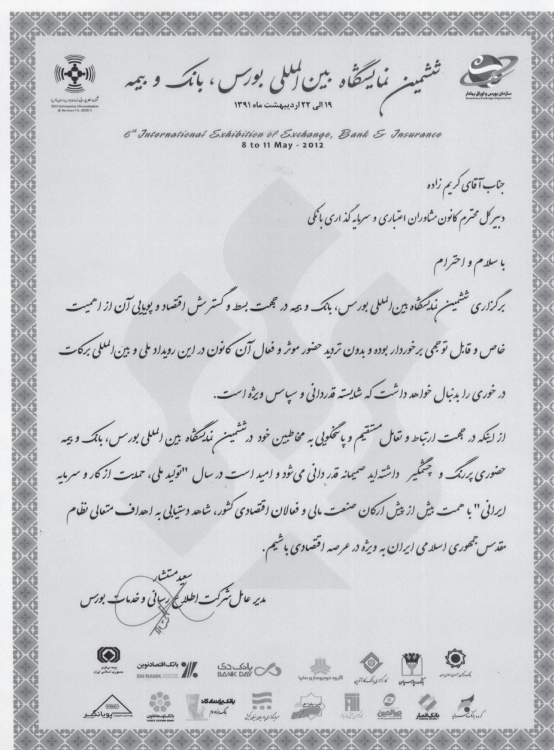 ششمین نمایشگاه بین المللی بورس، بانک و بیمه
۱۹ الی ۲۲ اردیبهشت ماه ۱۳۹۱
6th International Exhibition of Exchange, Bank & Insurance
8 to 11 May - 2012
سازمان بورس و اوراق بهادار
جناب آقای کریم زاده
دبیرکل محترم کانون مشاوران اعتباری و سرمایه گذاری بانکی
با سلام و احترام
برگزاری ششمین نمایشگاه بین المللی بورس، بانک و بیمه در جهت بسط و گسترش اقتصاد و پویایی آن از اهمیت
خاص و قابل توجهی برخوردار بوده و بدون تردید حضور موثر و فعال آن کانون در این رویداد ملی و بین المللی برکات
در خوری را بدنبال خواهد داشت که شایسته قدردانی و سپاس ویژه است.
از اینکه در جهت ارتباط و تعامل مستقیم و پاسخگویی به مخاطبین خود در ششمین نمایشگاه بین المللی بورس، بانک و بیمه
حضوری پررنگ و چشمگیر داشته اید صمیمانه قدردانی می شود و امید است در سال "تولید ملی، حمایت از کار و سرمایه
ایرانی" با همت بیش از پیش ارکان صنعت مالی و فعالان اقتصادی کشور، شاهد دستیابی به اهداف متعالی نظام
مقدس جمهوری اسلامی ایران به ویژه در عرصه اقتصادی باشیم.
سعید مستشار
مدیر عامل شرکت اطلاع رسانی و خدمات بورس
بانک اقتصادنوین
EN BANK
بانک دی
BANK DAY
گروه خودروسازی سایپا
پویانگیر
بانک پاسارگاد
بانک انصار